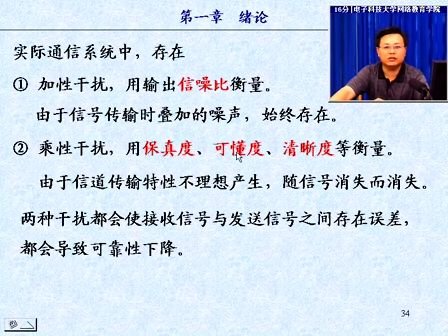 第一章 绪论
16分 电子科技大学网络教育学院
实际通信系统中，存在
① 加性干扰，用输出信噪比衡量。
由于信号传输时叠加的噪声，始终存在。
② 乘性干扰，用保真度、可懂度、清晰度等衡量。
由于信道传输特性不理想产生，随信号消失而消失。
两种干扰都会使接收信号与发送信号之间存在误差，
都会导致可靠性下降。
34